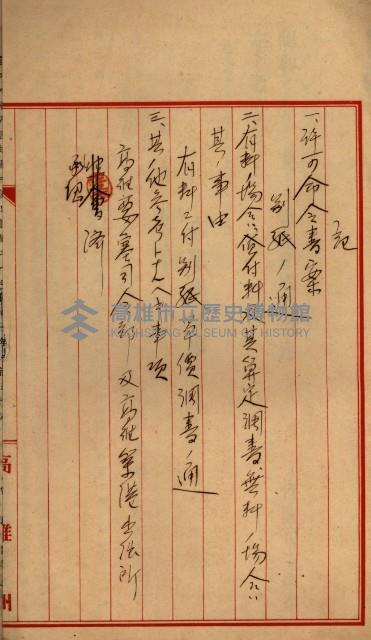 記
一、許可命令書案
別紙ノ通
二、有料ノ場合ハ貸付料及其算定調書、無料ノ場合ハ
其ノ事由
有料ニ付別紙單價調書ノ通
三、其ノ他參考トナルヘキ事項
高雄要塞司令部及高雄築港出張所
高雄州
高雄市立歷史博物館
KAOHSIUNG MUSEUM OF HISTORY